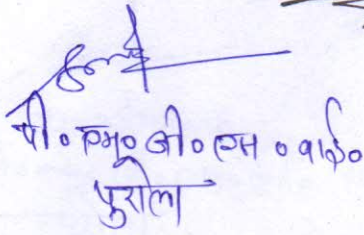 पी० एम० जी० एस० वाई०
पुरोला